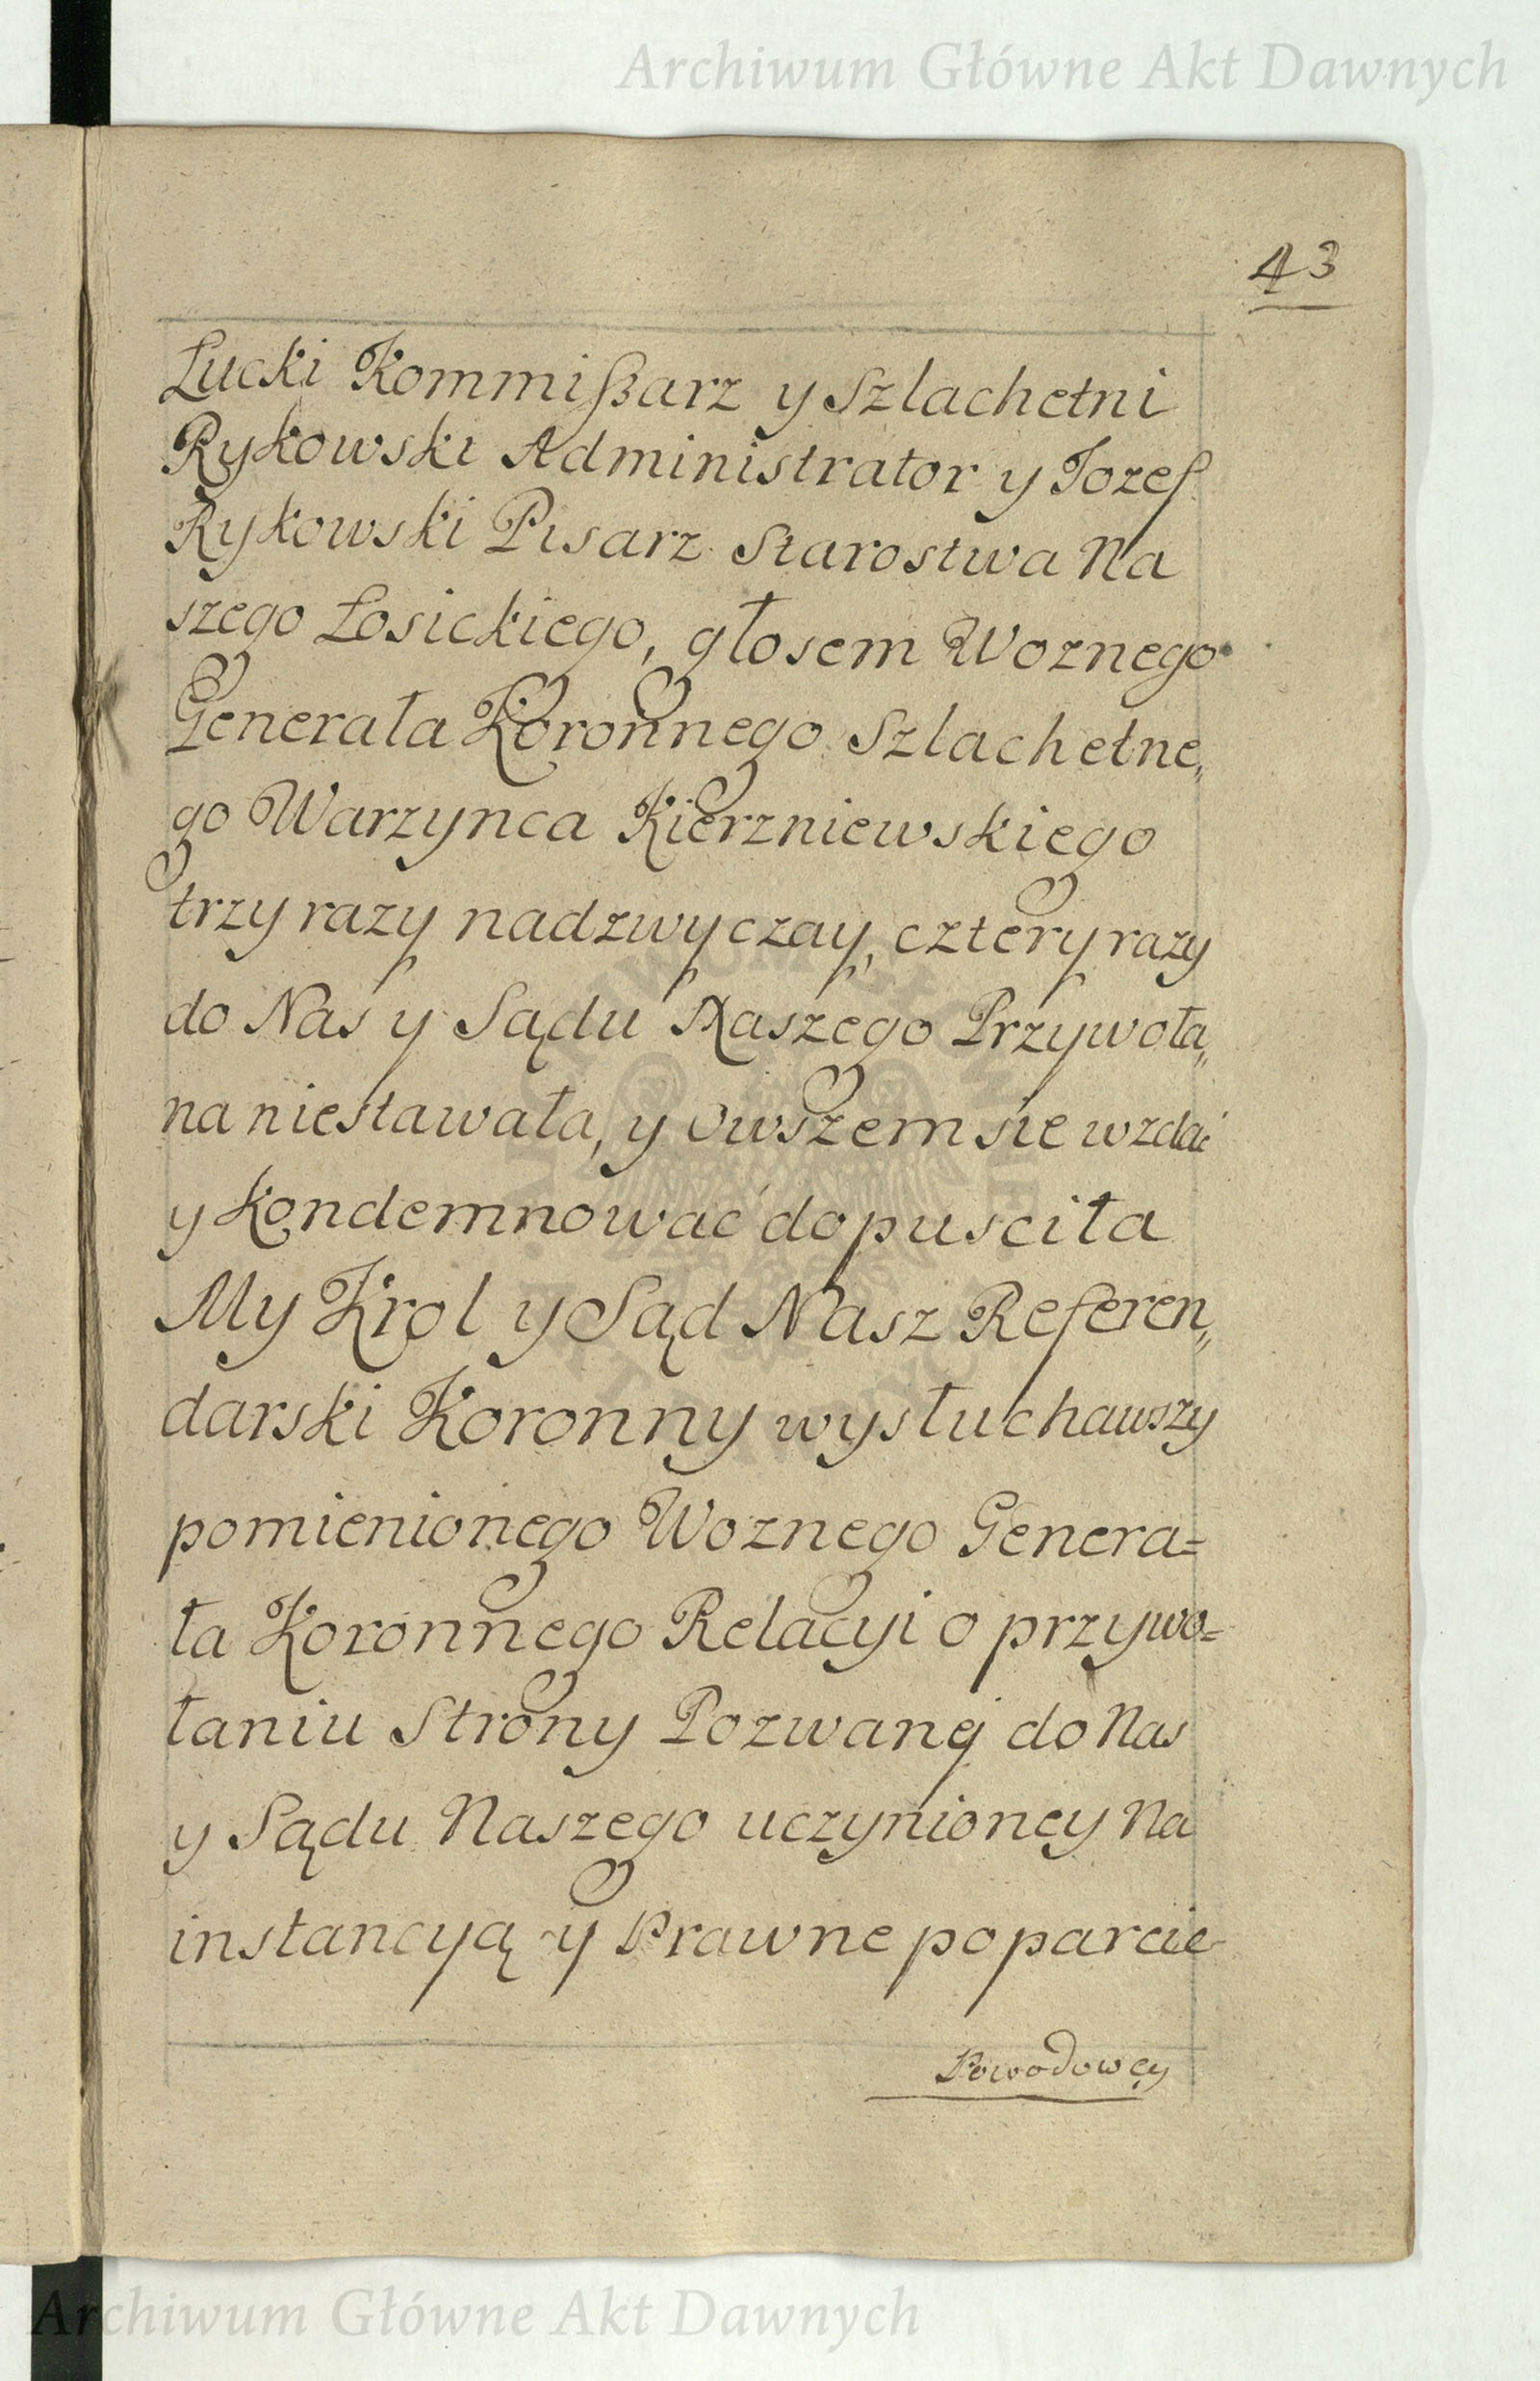 Archiwum Główne Akt Dawnych
43
Łucki Kommißarz y Szlachetni
Rykowski Administrator y Jozef
Rykowski Pisarz Starostwa Na
szego Łosickiego, głosem Woznego
Generała Koronnego Szlachetne„
go Warzynca Kierzniewskiego
trzy razy nadzwyczay, cztery razy
do Nas y Sądu Naszego Przywoła„
na niestawała, y owszem sie wzdać
y kondemnować dopusciła
My Krol y Sąd Nasz Referen„
darski Koronny wysłuchawszy
pomienionego Woznego Genera=
ła Koronnego Relacyi o przywo=
łaniu Strony Pozwanej do Nas
y Sądu Naszego uczynioney Na
instancyą y Prawne poparcie
Powodowey
Archiwum Główne Akt Dawnych